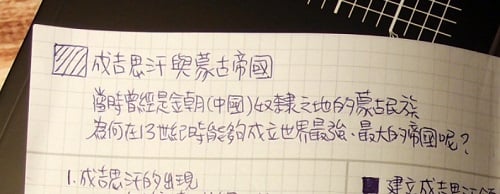 成吉思汗與蒙古帝國
當時曾經是金朝(中國)奴隸之地的蒙古民族
為何在13世紀時能夠成立世界最強、最大的帝國呢?
1.成吉思汗的出現
建立成吉思汗